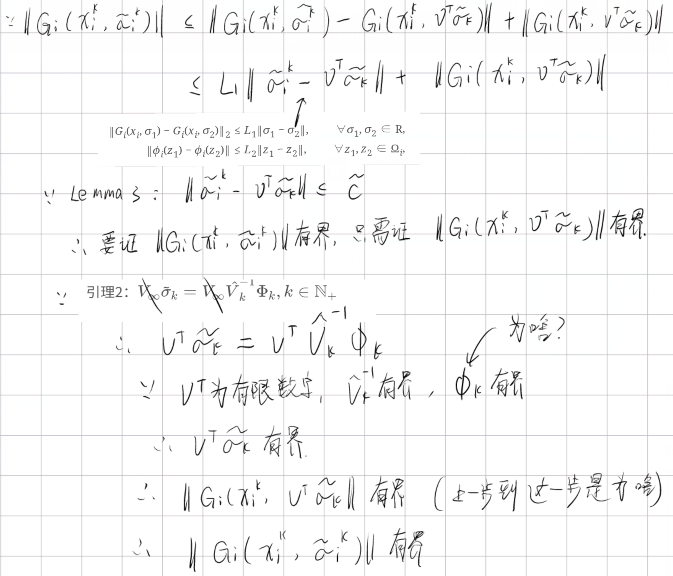 ∵ ‖Gᵢ(xᵢᵏ, σ̃ᵢᵏ)‖ ≤ ‖Gᵢ(xᵢᵏ, σ̃ᵢᵏ) - Gᵢ(xᵢᵏ, νᵀσ̃ₖ)‖ + ‖Gᵢ(xᵢᵏ, νᵀσ̃ₖ)‖
≤ L₁‖σ̃ᵢᵏ - νᵀσ̃ₖ‖ + ‖Gᵢ(xᵢᵏ, νᵀσ̃ₖ)‖
‖Gᵢ(xᵢ, σ₁) − Gᵢ(xᵢ, σ₂)‖₂ ≤ L₁‖σ₁ − σ₂‖, ∀σ₁, σ₂ ∈ R,
‖ϕᵢ(z₁) − ϕᵢ(z₂)‖ ≤ L₂‖z₁ − z₂‖, ∀z₁, z₂ ∈ Ωᵢ,
∵ Lemma 3: ‖σ̃ᵢᵏ - νᵀσ̃ₖ‖ ≤ C̃
∴ 要证 ‖Gᵢ(xᵢᵏ, σ̃ᵢᵏ)‖有界, 只需证 ‖Gᵢ(xᵢᵏ, νᵀσ̃ₖ)‖有界.
∵ 引理2: V∞σ̃ₖ = V∞V̂ₖ⁻¹Φₖ, k ∈ ℕ₊
∴ νᵀσ̃ₖ = νᵀ V̂ₖ⁻¹ Φₖ
为啥?
∵ νᵀ为有限数字, V̂ₖ⁻¹有界, Φₖ有界
∴ νᵀσ̃ₖ 有界.
∴ ‖Gᵢ(xᵢᵏ, νᵀσ̃ₖ)‖ 有界 (上一步到这一步是为啥)
∴ ‖Gᵢ(xᵢᵏ, σ̃ᵢᵏ)‖ 有界